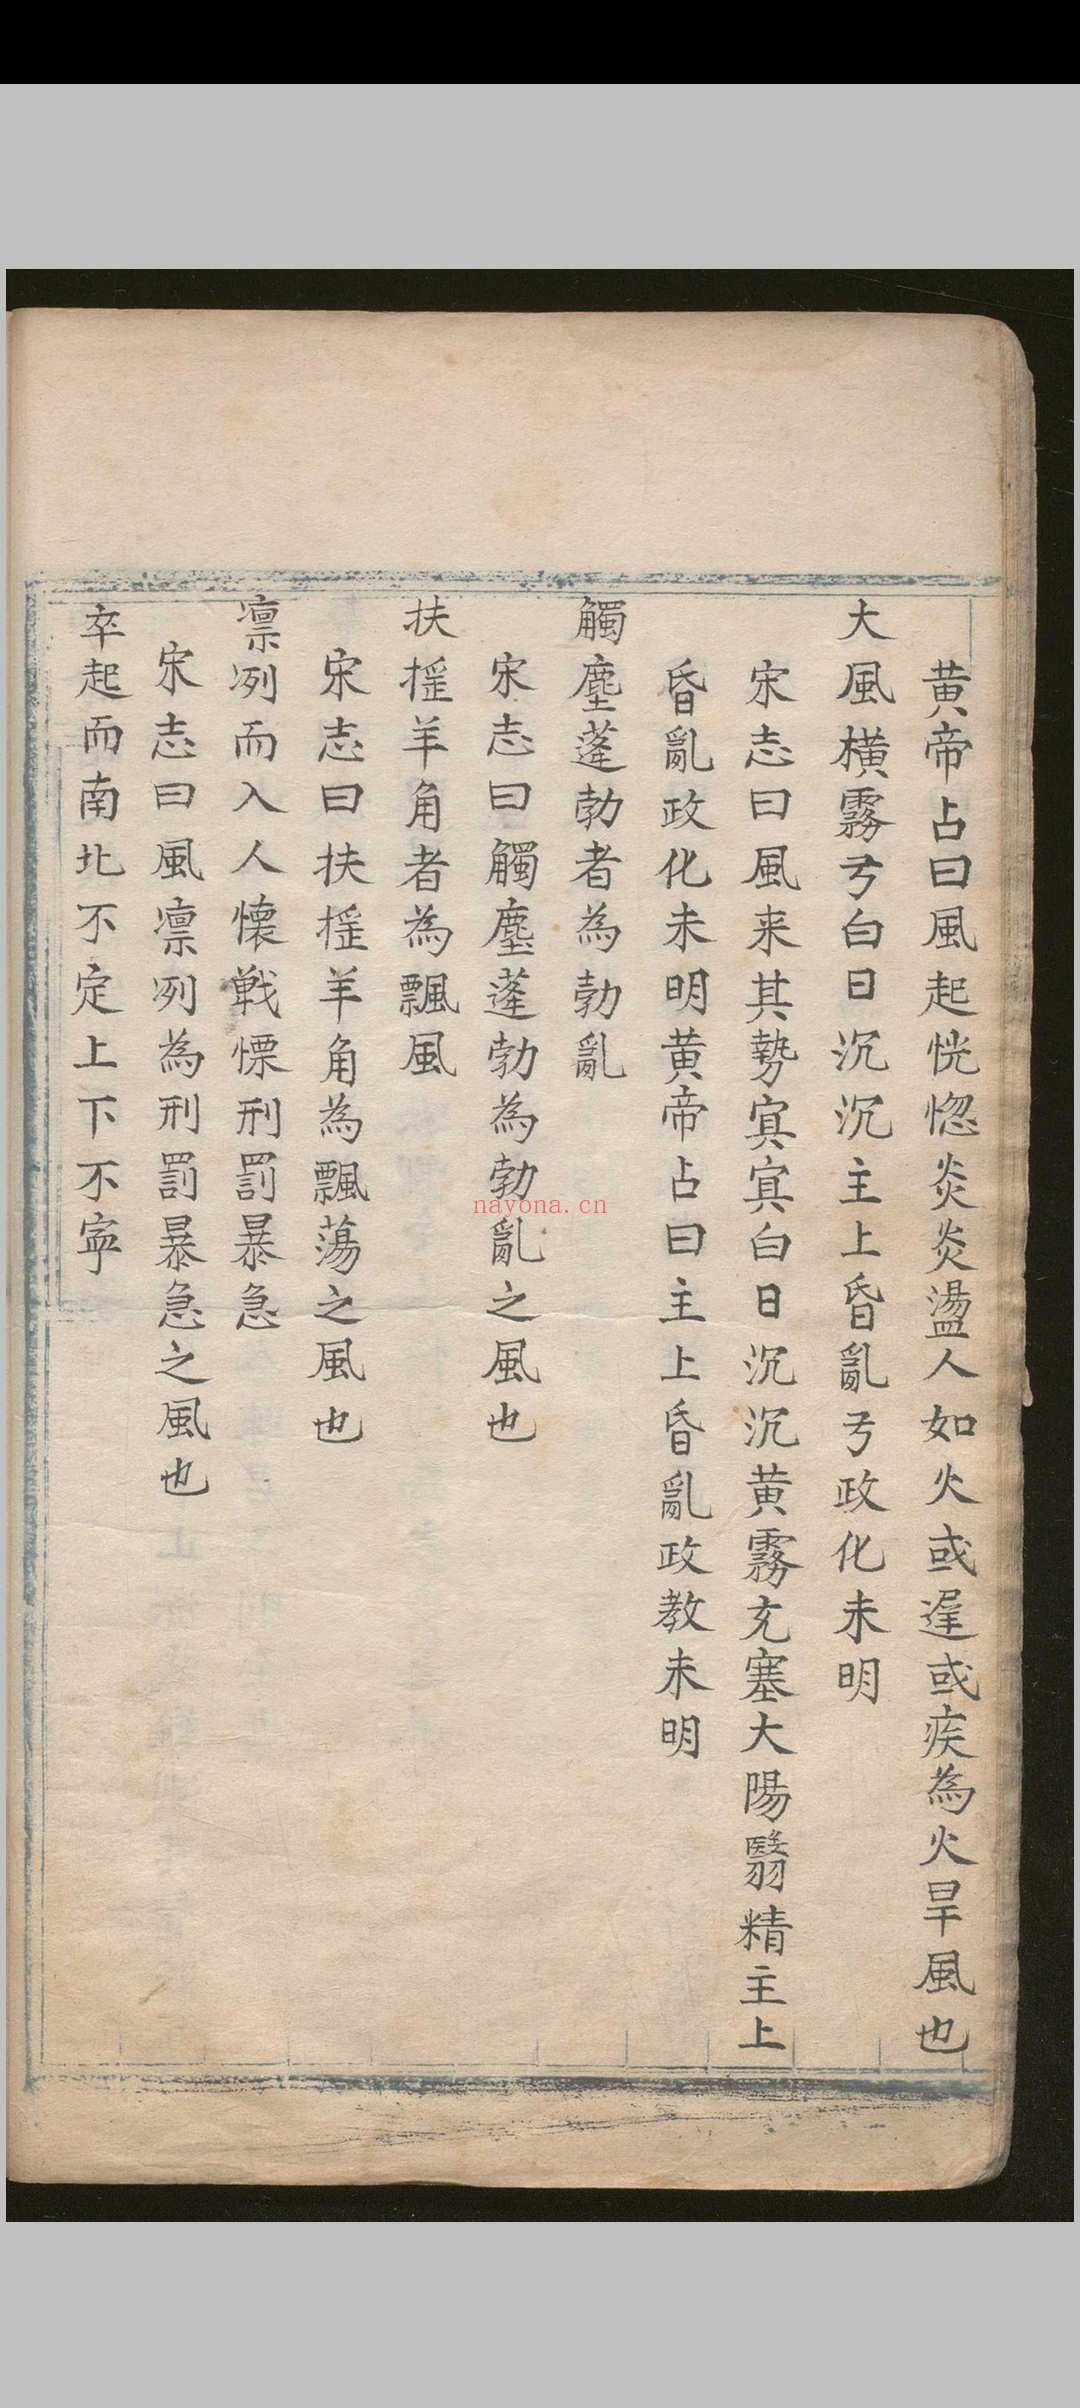 黄帝占曰風起恍惚炎炎盪人如火或遅或疾為火旱風也
大風横霧兮白日沉沉主上昏亂兮政化未明
宋志曰風来其勢寘寘白日沉沉黄霧充塞大陽翳精主上
昏亂政化未明黄帝占曰主上昏亂政教未明
觸塵蓬勃者為勃亂
宋志曰觸塵蓬勃為勃亂之風也
扶揺羊角者為飄風
宋志曰扶揺羊角為飄蕩之風也
凛冽而入人懐戦慄刑罰暴急
宋志曰風凛冽為刑罰暴急之風也
卒起而南北不定上下不寧
nayona.cn